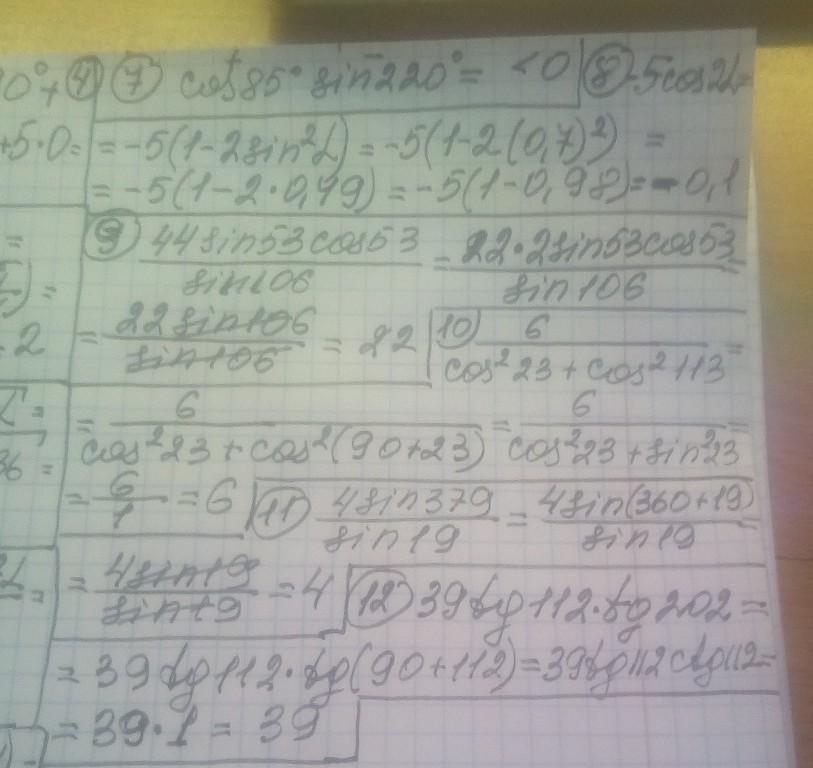 0°+ ④ ⑦ cos⁺85° sin⁻220° = <0 ⑧ -5cos2L=
+5·0= = -5(1-2sin²L) = -5(1-2(0,7)²) =
= -5(1-2·0,49) = -5(1-0,98) = -0,1
= ⑨ 44sin53cos53 / sin106 = 22·2sin53cos53 / sin106 =
= 22sin106 / sin106 = 22 ⑩ 6 / cos²23+cos²113 =
= 6 / cos²23+cos²(90+23) = 6 / cos²23+sin²23 =
= 6/1 = 6 ⑪ 4sin379 / sin19 = 4sin(360+19) / sin19 =
= 4sin19 / sin19 = 4 ⑫ 39tg112·tg202 =
= 39tg112·tg(90+112) = 39tg112ctg112=
= 39·1 = 39